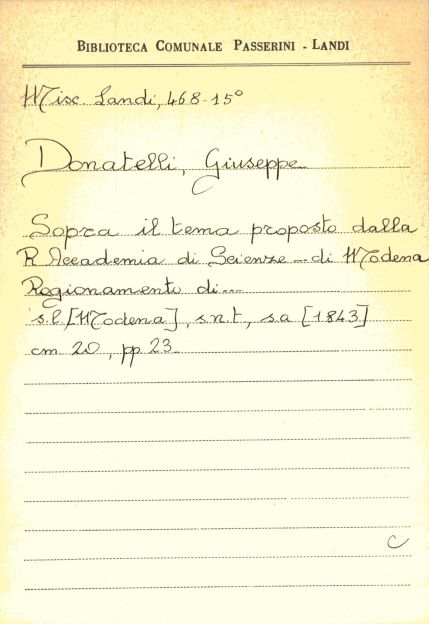 BIBLIOTECA COMUNALE PASSERINI - LANDI
Misc. Landi, 468-15°
Donatelli, Giuseppe
Sopra il tema proposto dalla
R. Accademia di Scienze ... di Modena
Ragionamento di ...
s.l. [Modena], s.n.t., s.a. [1843]
cm 20, pp 23
C